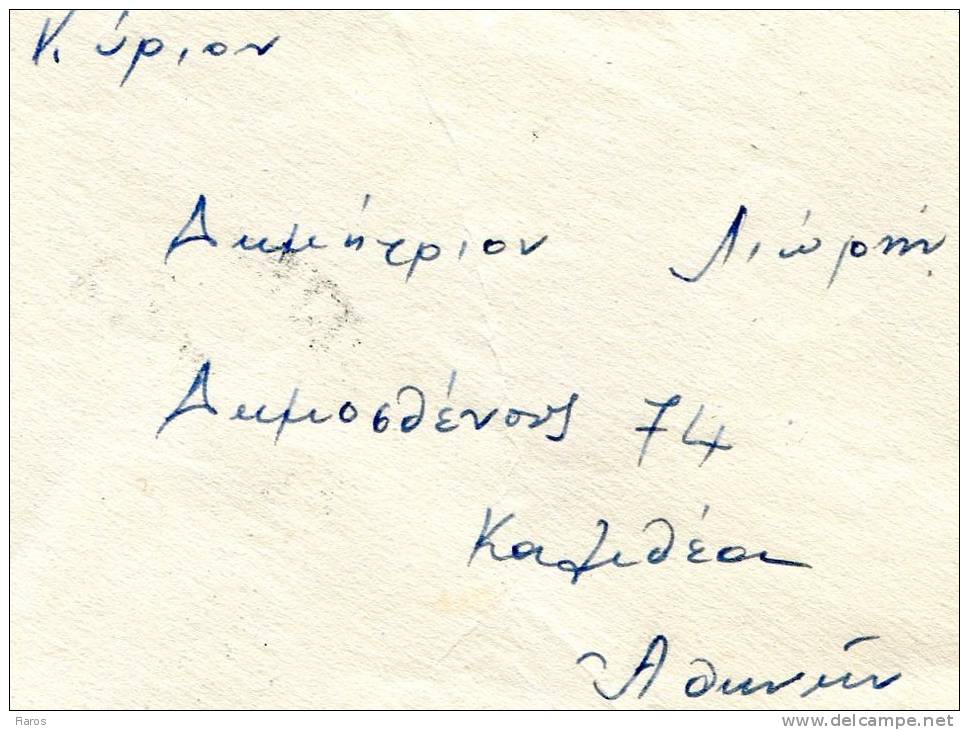 Κύριον
Δημήτριον Λιώρην
Δημοσθένους 74
Καλιθέαι
Ἀθηνῶν
Raros
www.delcampe.net